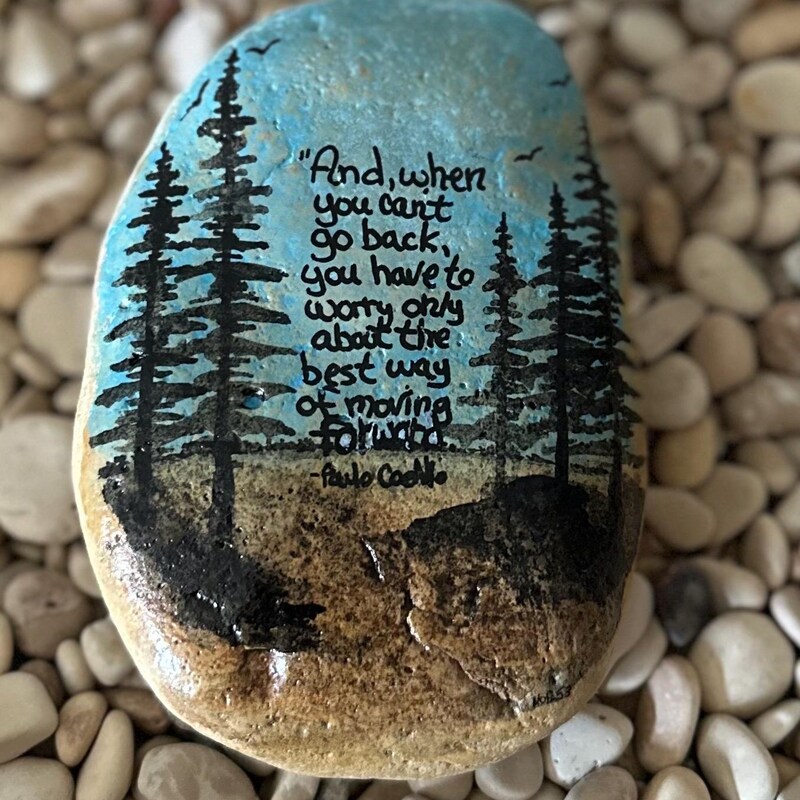 "And, when
you can't
go back,
you have to
worry only
about the
best way
of moving
forward."
-Paulo Coehlo